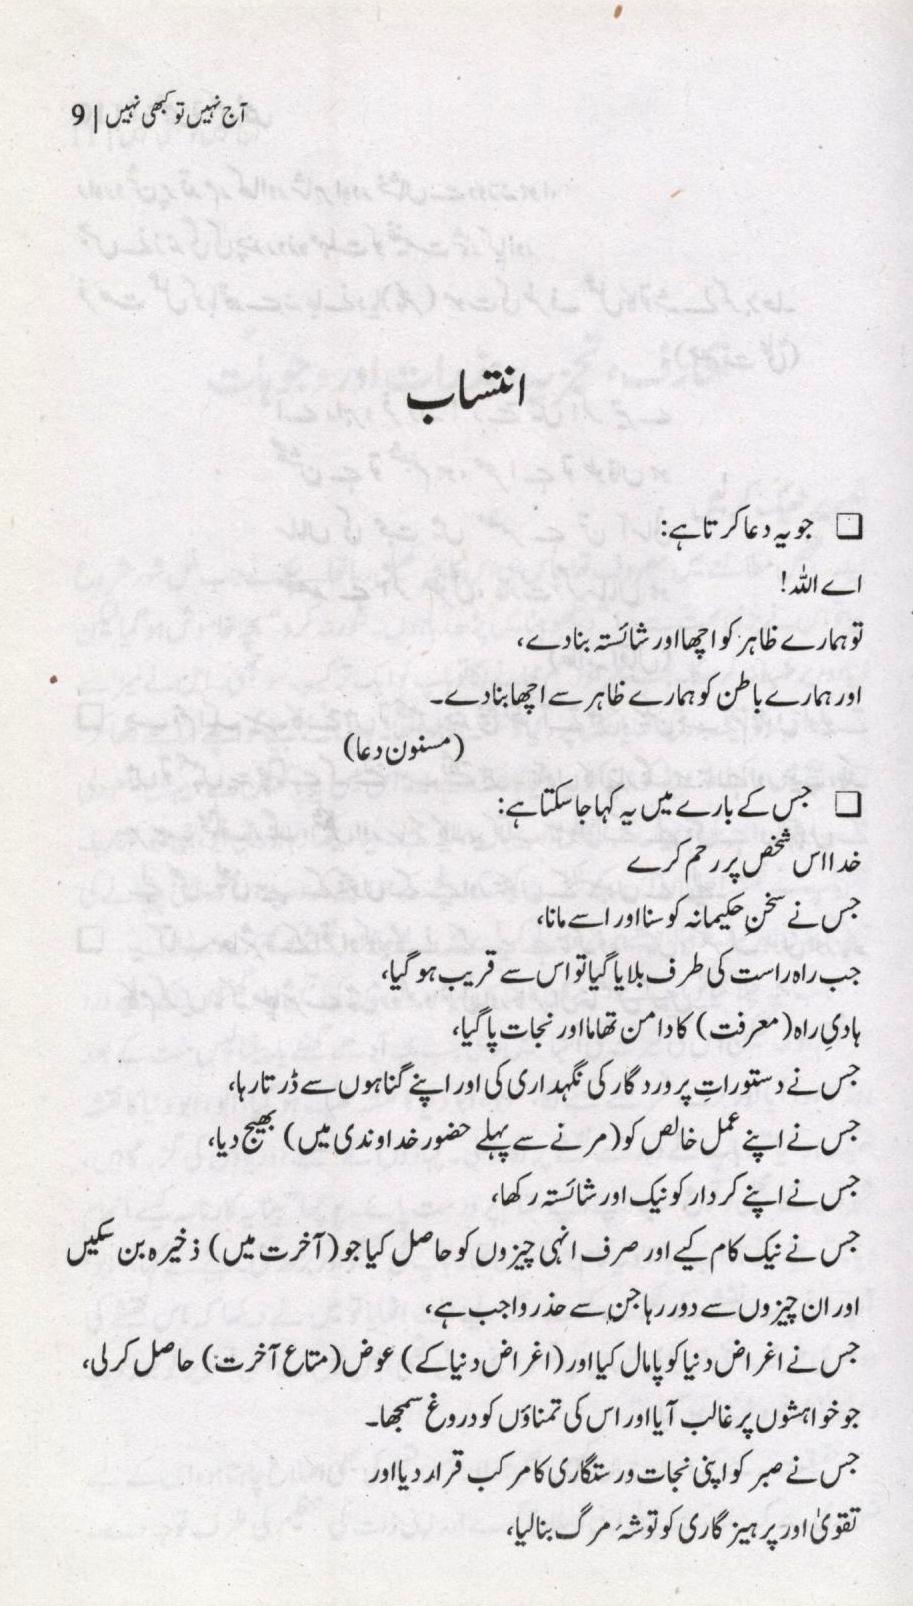 آج نہیں تو کبھی نہیں | 9
انتساب
❑ جو یہ دعا کرتا ہے:
اے اللہ!
تو ہمارے ظاہر کو اچھا اور شائستہ بنا دے،
اور ہمارے باطن کو ہمارے ظاہر سے اچھا بنا دے۔
(مسنون دعا)
❑ جس کے بارے میں یہ کہا جا سکتا ہے:
خدا اس شخص پر رحم کرے
جس نے سخنِ حکیمانہ کو سنا اور اسے مانا،
جب راہ راست کی طرف بلایا گیا تو اس سے قریب ہو گیا،
ہادیِ راہ (معرفت) کا دامن تھاما اور نجات پا گیا،
جس نے دستوراتِ پروردگار کی نگہداری کی اور اپنے گناہوں سے ڈرتا رہا،
جس نے اپنے عمل خالص کو (مرنے سے پہلے حضور خداوندی میں) بھیج دیا،
جس نے اپنے کردار کو نیک اور شائستہ رکھا،
جس نے نیک کام کیے اور صرف انہی چیزوں کو حاصل کیا جو (آخرت میں) ذخیرہ بن سکیں
اور ان چیزوں سے دور رہا جن سے حذر واجب ہے،
جس نے اغراض دنیا کو پامال کیا اور (اغراض دنیا کے) عوض (متاع آخرت) حاصل کر لی،
جو خواہشوں پر غالب آیا اور اس کی تمناؤں کو دروغ سمجھا۔
جس نے صبر کو اپنی نجات ورستگاری کا مرکب قرار دیا اور
تقویٰ اور پرہیز گاری کو توشۂ مرگ بنا لیا،